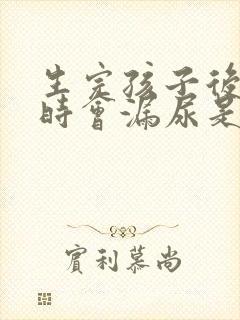 生完孩子後
時會漏尿是
寶利慕尚